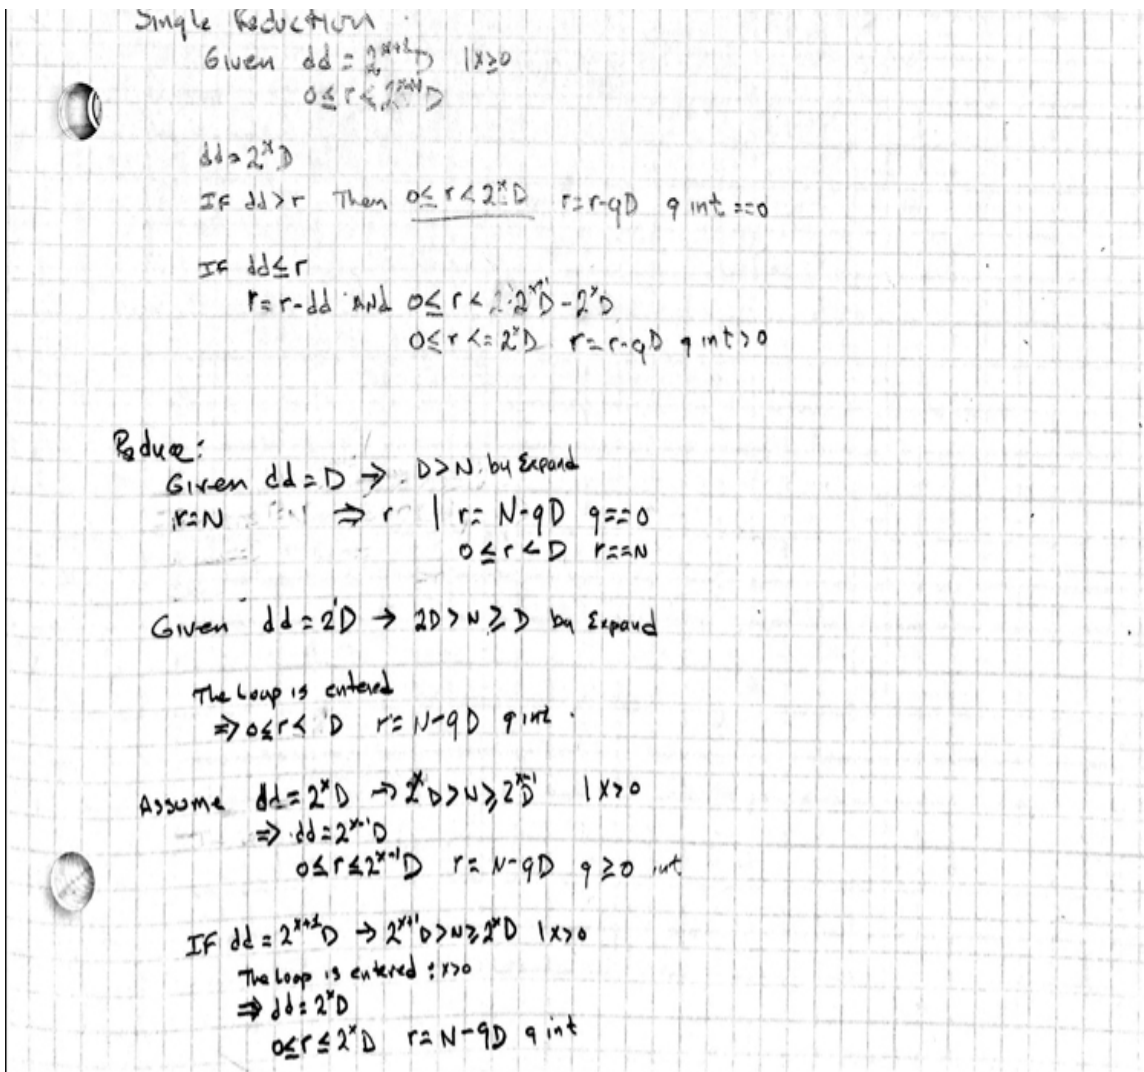 Single Reduction
Given dd = 2^{x+1}D | x≥0
0 ≤ r < 2^{x+1}D
dd = 2^x D
IF dd > r Then 0 ≤ r < 2^x D r = r-qD q int ==0
IF dd ≤ r
r = r-dd AND 0 ≤ r < 2·2^x D - 2^x D
0 ≤ r <= 2^x D r = r-qD q int > 0
Reduce:
Given dd = D → D > N by Expand
r = N ⇒ r | r = N-qD q==0
0 ≤ r < D r==N
Given dd = 2'D → 2D > N ≥ D by Expand
The Loop is entered
⇒ 0 ≤ r < D r = N-qD q int
Assume dd = 2^x D → 2^x D > N ≥ 2^{x-1}D | x>0
⇒ dd = 2^{x-1}D
0 ≤ r ≤ 2^{x-1}D r = N-qD q ≥ 0 int
IF dd = 2^{x+1}D → 2^{x+1}D > N ≥ 2^x D | x>0
The Loop is entered : x>0
⇒ dd = 2^x D
0 ≤ r ≤ 2^x D r = N-qD q int